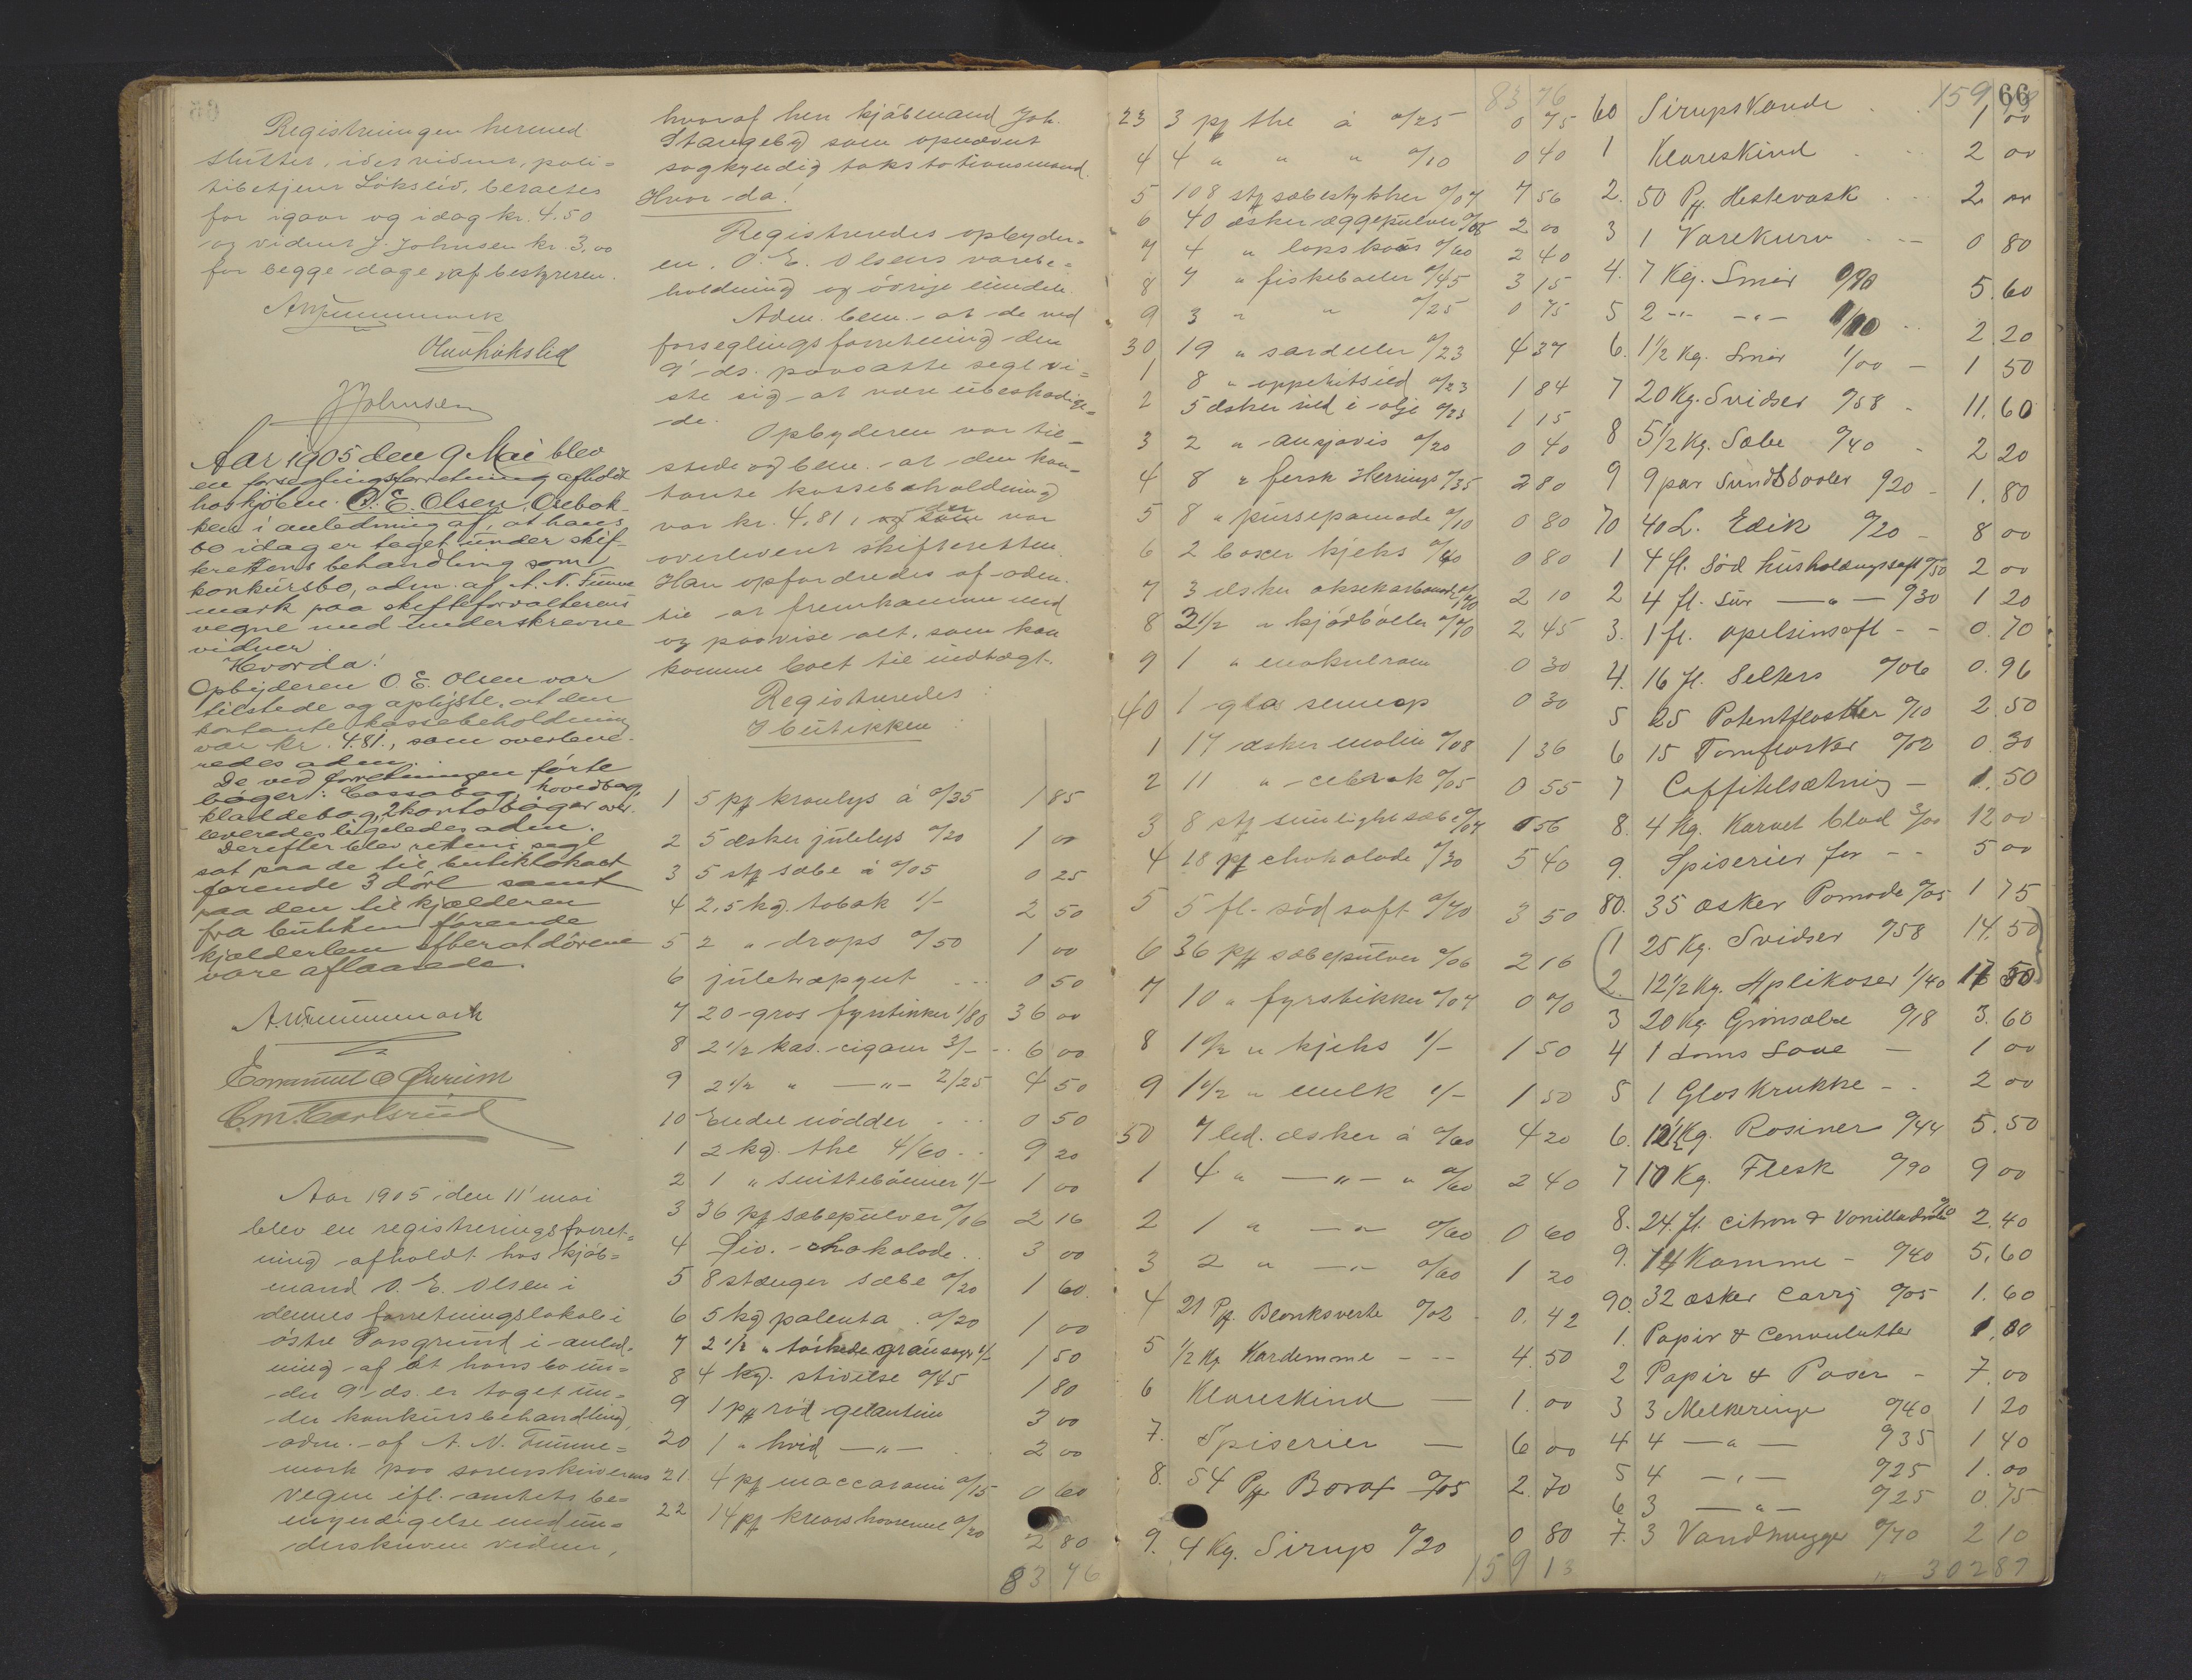 Registreringen hermed
sluttes, idet vidnet, poli-
tibetjent Lökslid, betaltes
for igaar og idag kr. 4.50
og vidnet J. Johnsen kr. 3,00
for begge dage, af bestyreren.
Olav Lökslid
J Johnsen
Aar 1905 den 9 Mai blev
en forseglingsforretning afholdt
hos kjöbm. O. E. Olsen, Osebak-
ken i anledning af, at hans
bo idag er taget under skif-
terettens behandling som
konkursbo, adm. af A. N. Tunne
mark paa skifteforvalterens
vegne med underskrevne
vidner.
Hvorda!
Opbyderen O. E. Olsen var
tilstede og oplyste, at den
kontante kassebeholdning
var kr. 4.81., som overleve-
redes adm.
De ved forretningen förte
böger: Cassabog, hovedbog,
kladdebog, 2 kontoböger over-
leveredes ligeledes adm.
Derefter blev rettens segl
sat paa de til butiklokalet
förende 3 döre samt
paa den til kjælderen
fra butiken förende
kjælderlem efterat dörene
vare aflaasede.
Emanuel
C. M. Carlsrud
Aar 1905 den 11' mai
blev en registreringsforret-
ning afholdt hos kjöb-
mand O. E. Olsen i
dennes forretningslokale i
östre Porsgrund i anled-
ning af at hans bo un-
der 9' ds. er taget un-
der konkursbehandling,
adm. af A. N. Tunne-
mark paa sorenskriverens
vegne ifl. amtets be-
myndigelse med un-
derskrevne vidner,
hvoraf herr kjöbmand Joh.
Stangeby som opnævnt
sagkyndig takstationsmand.
Hvor da!
Registreredes opbyder-
en, O. E. Olsens varebe-
holdning og övrige eiendele.
Adm. bem. at de ved
forseglingsforretning den
9' ds. paasatte segl vi-
ste sig at være ubeskadige-
de.
Opbyderen var til-
stede og bem. at den kon-
tante kassebeholdning
var kr. 4.81, der var
overleveret skifteretten.
Han opfordredes af adm.
til at fremkomme med
og paavise alt, som kan
komme boet til indtægt.
Registreredes:
I butikken:
1 5 pk kronlys á 0/35 1 85
2 5 æsker julelys 0/20 1 00
3 5 stk sæbe á 0/05 0 25
4 2,5 kg. tobak 1/- 2 50
5 2 " drops 0/50 1 00
6 juletræpynt 0 50
7 20 gros fyrstikker 1/80 36 00
8 2 1/2 kas. cigarer 3/- 6 00
9 2 1/2 " —"— 2/25 4 50
10 Endel nödder 0 50
1 2 kg. the 4/60 9 20
2 1 " snittebönner 1/- 1 00
3 36 pk sæbepulver 0/06 2 16
4 Div. chokolade 3 00
5 8 stænger sæbe 0/20 1 60
6 5 kg polenta 0/20 1 00
7 2 1/2 " törkede grönsager 1/- 1 50
8 4 kg. stivelse 0/45 1 80
9 1 pk röd gelantine 3 00
20 1 " hvid —"— 2 00
21 4 pk maccaroni 0/15 0 60
22 14 pk 0/20 2 80
83 76
83 76
23 3 pk the á 0/25 0 75
4 4 " " " 0/10 0 40
5 108 stk sæbestykker 0/07 7 56
6 40 æsker æggepulver 0/05 2 00
7 4 " lapskaus 0/60 2 40
8 7 " fiskeboller 0/45 3 15
9 3 " " 0/25 0 75
30 19 " sardeller 0/23 4 37
1 8 " appetitsild 0/23 1 84
2 5 æsker sild i olje 0/23 1 15
3 2 " ansjovis 0/20 0 40
4 8 " fersk Herrings 0/35 2 80
5 8 " pursepomade 0/10 0 80
6 2 boxer kjeks 0/40 0 80
7 3 æsker oksekarbonade 0/70 2 10
8 3 1/2 " kjödboller 0/70 2 45
9 1 " 0 30
40 1 glas sennep 0 30
1 17 æsker 0/08 1 36
2 11 " 0/05 0 55
3 8 stk sunlightsæbe 0/07 0 56
4 18 pk chokolade 0/30 5 40
5 5 fl. söd saft 0/70 3 50
6 36 pk sæbepulver 0/06 2 16
7 10 " fyrstikker 0/07 0 70
8 1 1/2 " kjeks 1/- 1 50
9 1 1/2 " melk 1/- 1 50
50 7 led. æsker á 0/60 4 20
1 4 " —"— " 0/60 2 40
2 1 " —"— 0/60 0 60
3 2 " —"— 0/60 1 20
4 21 Pk. Blanksverte 0/02 0.42
5 1/2 Kg Kardemme 4.50
6 Klareskind 1.00
7. Spiserier 6 00
8. 54 Pk. Borax 0/05 2.70
9. 4 Kg. Sirup 0/20 0 80
159 13
159 13
66
60 Sirupskande 1 00
1 Klareskind 2 00
2. 50 Pk. Hestevask 2 00
3 1 Varekurv 0 80
4. 7 Kg. Smör 0/80 5.60
5 2 -"- -"- 1/10 2.20
6. 1 1/2 Kg. Smör 1/00 1 50
7 20 Kg. Svidser 0/58 11.60
8 5 1/2 Kg. Sæbe 0/40 2 20
9 9 par 0/20 1.80
70 40 L. Edik 0/20 8 00
1 4 fl. Söd husholdningssaft 0/50 2 00
2 4 fl. Sur —"— 0/30 1 20
3. 1 fl. apelsinsaft 0.70
4. 16 fl. Selters 0/06 0.96
5 25 Potentflasker 0/10 2.50
6 15 Tomflasker 0/02 0.30
7 Caffitilsætning 1.50
8. 4 Kg. Karvet blad 3/00 12 00
9. Spiserier for 5 00
80. 35 æsker Pomade 0/05 1 75
1 25 Kg. Svidser 0/58 14.50
2. 12 1/2 Kg. Aplikoser 1/40 17 50
3 20 Kg. Grönsæbe 0/18 3.60
4 1 1 00
5 1 Glaskrukke 2 00
6. 12 1/2 Kg. Rosiner 0/44 5.50
7 10 Kg. Flesk 0/90 9 00
8. 24. fl. citron & Vanilledraaber 0/10 2.40
9. 14 Kamme 0/40 5.60
90. 32 æsker Carry 0/05 1.60
1. Papir & Convulutter 1.00
2 Papir & Poser 7.00
3 3 Melkeringe 0/40 1 20
4 4 —"— 0/35 1 40
5 4 —"— 0/25 1.00
6 3 —"— 0/25 0.75
7. 3 Vandmugger 0/70 2 10
302 87